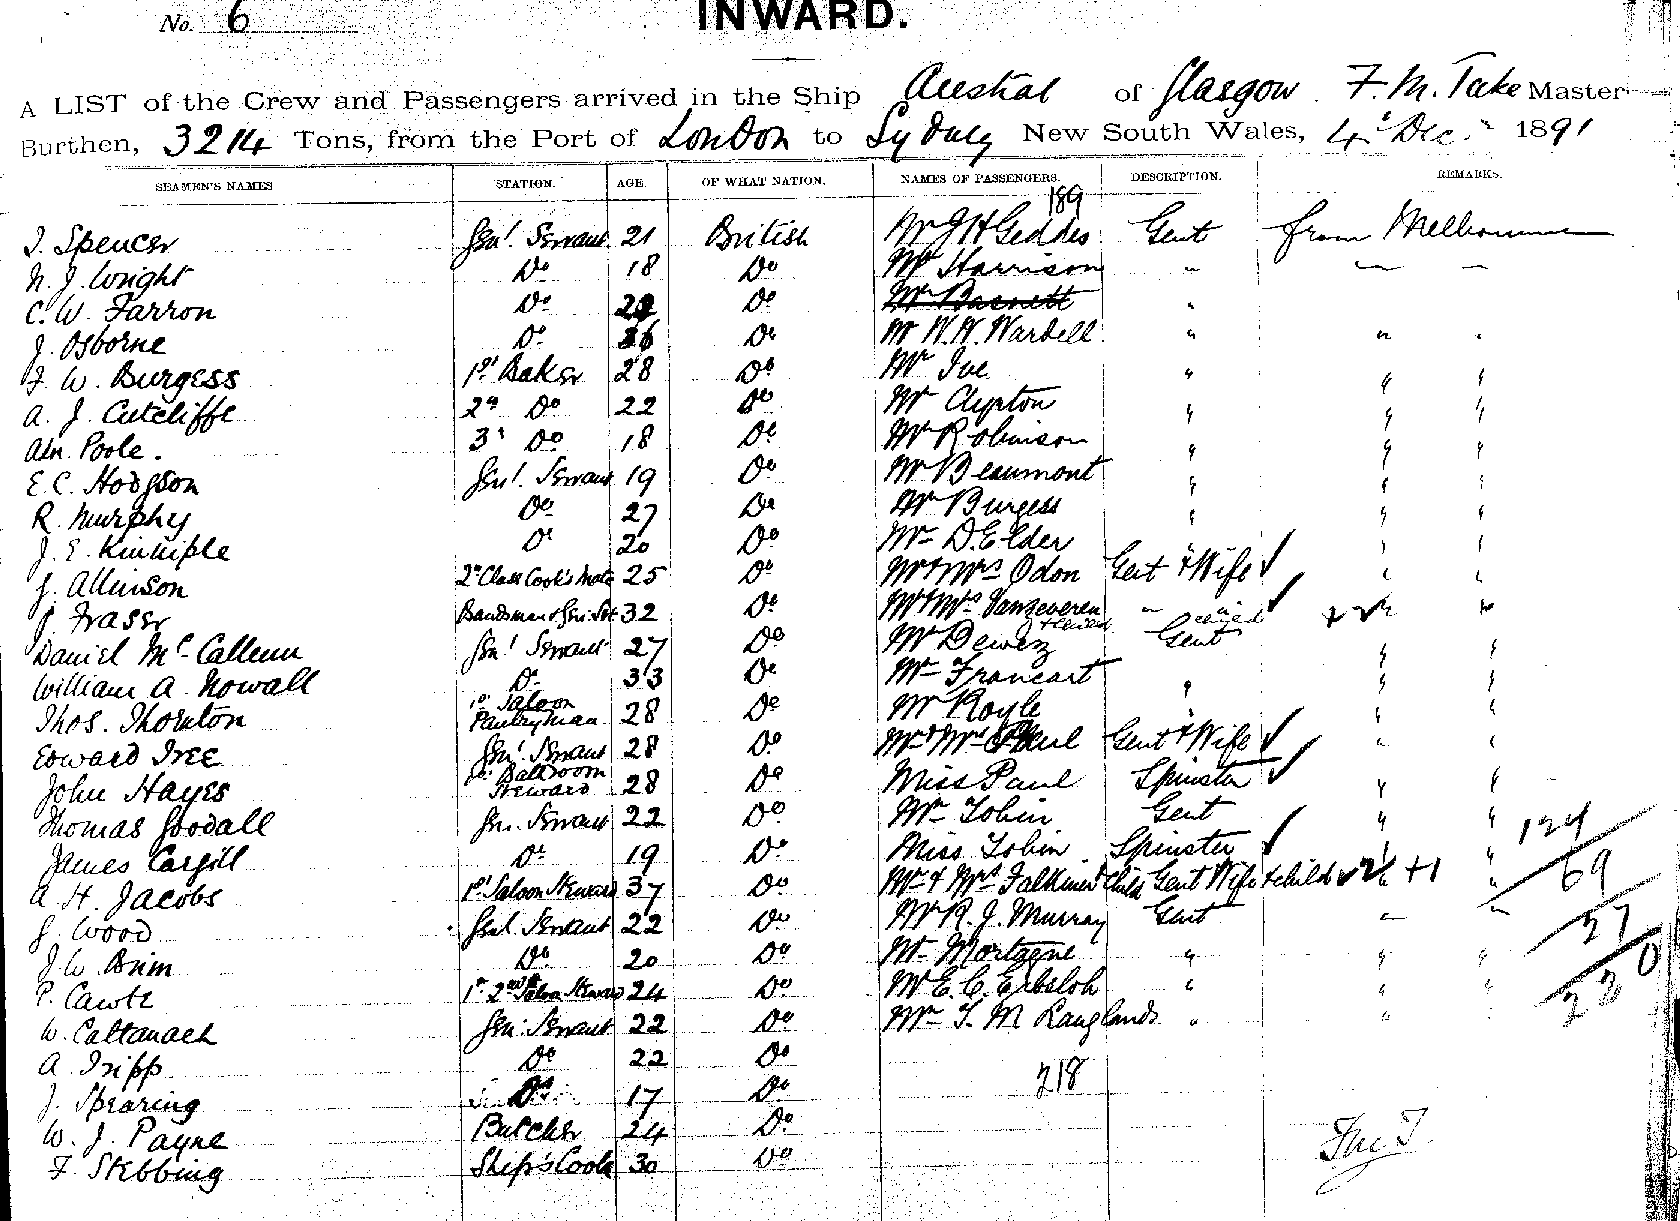 No. 6
INWARD.
A LIST of the Crew and Passengers arrived in the Ship Austral of Glasgow F. M. Tuke Master
Burthen, 3214 Tons, from the Port of London to Sydney New South Wales, 4th Dec. 1891
SEAMEN'S NAMES STATION. AGE. OF WHAT NATION. NAMES OF PASSENGERS. DESCRIPTION. REMARKS.
189
J. Spencer Genl. Servant 21 British Mr J H Geddes Gent from Melbourne
N. J. Wright Do 18 Do Mr Harrison "
C. W. Farron Do Do Mr Basnett "
J. Osborne Do 26 Do Mr W. W. Wardell " " "
F. W. Burgess 1st Baker 28 Do Mr Ive " " "
A. J. Cutcliffe 2d Do 22 Do Mr Clypton " " "
Aln. Poole. 3d Do 18 Do Mr Robinson " " "
E. C. Hodgson Genl. Servant 19 Do Mr Beaumont " " "
R. Murphy Do 27 Do Mr Burgess " " "
J. E. Kinniple Do 20 Do Mr D. Elder " "
J. Allinson 2d Class Cook's Mate 25 Do Mr & Mrs Odon Gent & Wife ✓ " "
J. Fraser Bandsman & Genl Svt 32 Do Mr & Mrs Vanzeveren & child " " child ✓ "
Daniel McCallum Genl Servant 27 Do Mr Dewez Gent " "
William A. Nowall Do 33 Do Mr Francart " " "
Thos. Thornton 1st Saloon Pantryman 28 Do Mr Royle " "
Edward Tree Genl. Servant 28 Do Mr & Mrs Paul Gent & Wife ✓ " "
John Hayes Steward 28 Do Miss Paul Spinster ✓ " "
Thomas Goodall Gen. Servant 22 Do Mr Tobin Gent " "
James Cargill Do 19 Do Miss Tobin Spinster ✓ "
A. H. Jacobs 1st Saloon Steward 37 Do Mr & Mrs Falkiner & child Gent Wife & child ✓ +1 "
G. Wood Genl Servant 22 Do Mr R. J. Murray Gent " "
J. W. Brim Do 20 Do Mr Mortagne " " "
P. Cawte 1st 2nd Saloon Steward 24 Do Mr E. C. Erbsloh " " "
W. Caltanach Gen. Servant 22 Do Mr T. M Langlands " " "
A. Tripp Do 22 Do
J. Spearing Do 17 Do
W. J. Payne Butcher 24 Do
F. Stebbing Ship's Cook 30 Do
69
27
220
218